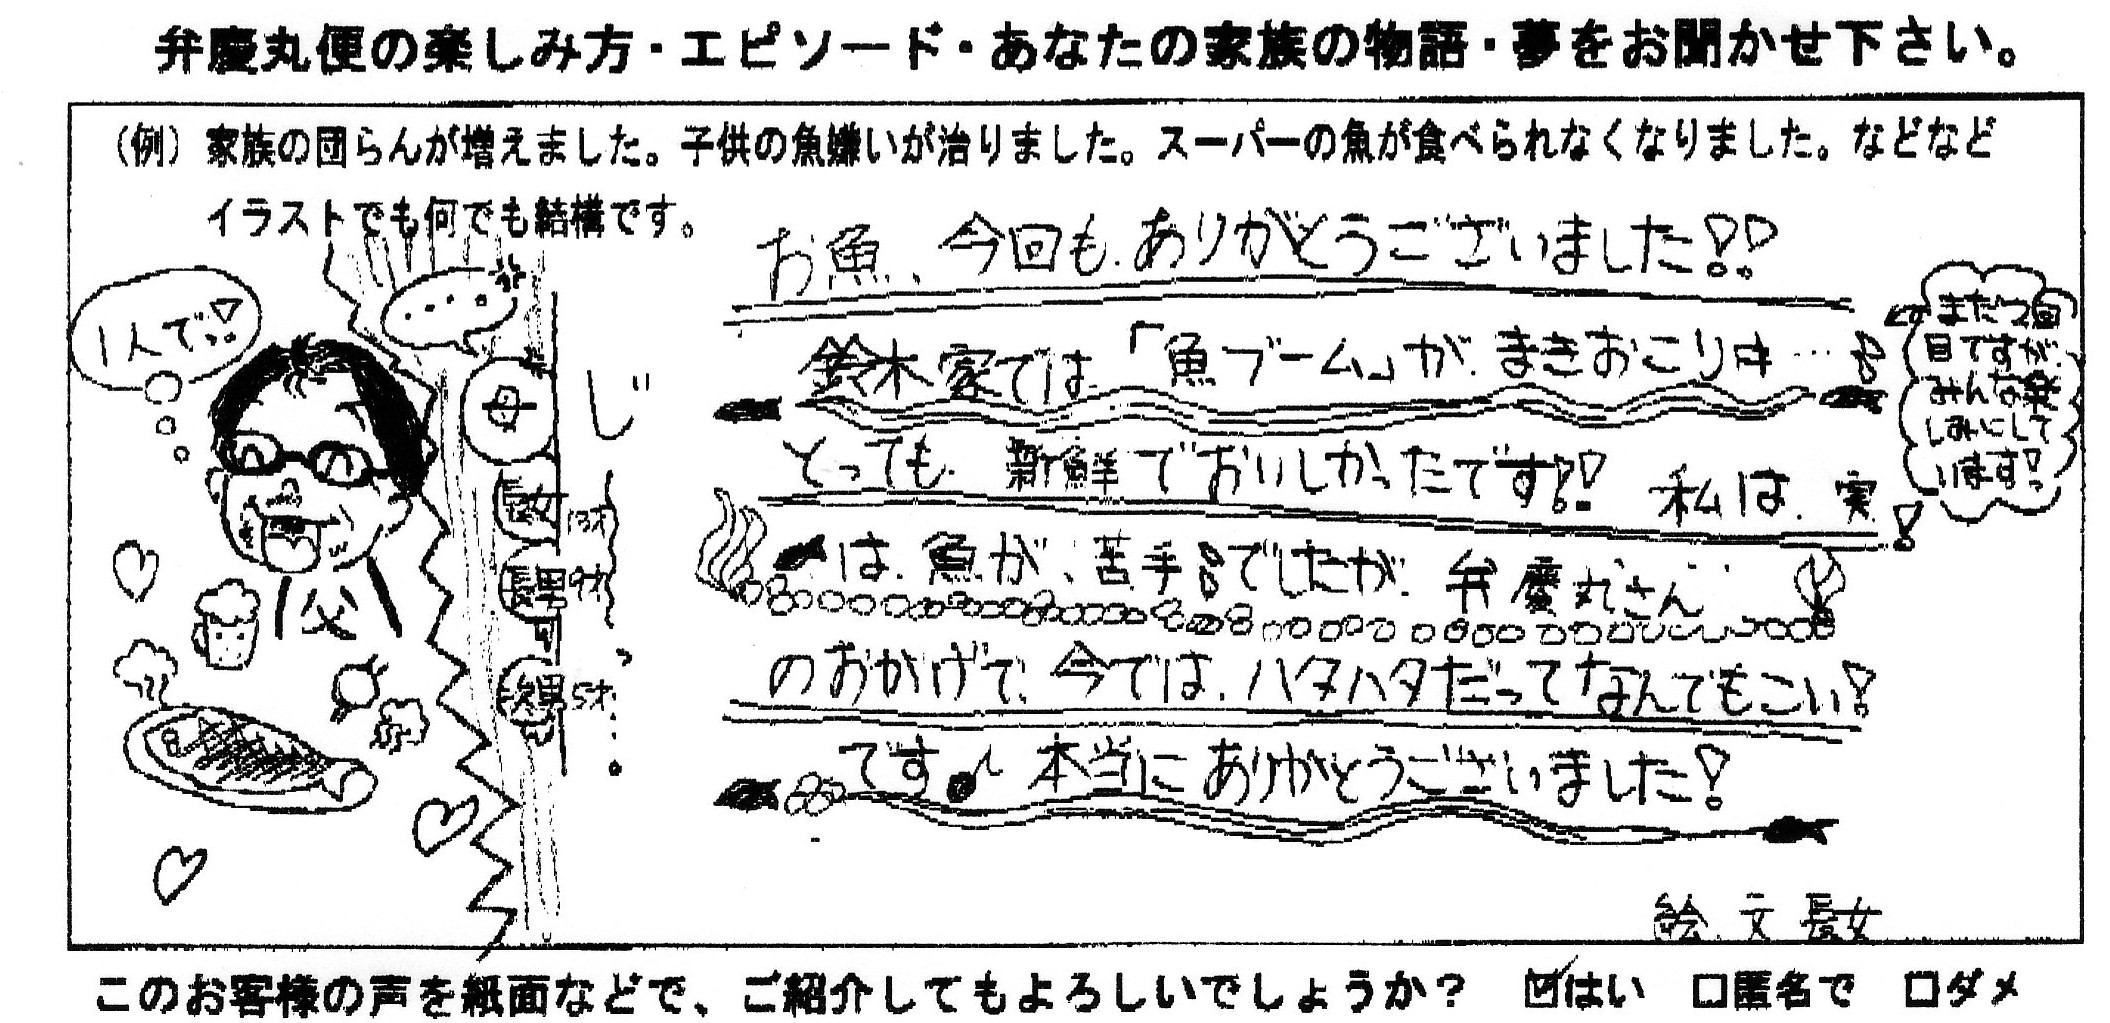 弁慶丸便の楽しみ方・エピソード・あなたの家族の物語・夢をお聞かせ下さい。
（例）家族の団らんが増えました。子供の魚嫌いが治りました。スーパーの魚が食べられなくなりました。などなど
イラストでも何でも結構です。
1人で!!
・・・
母
長女13才
長男9才
次男5才
じーーー
父
お魚、今回も、ありがとうございました!!
鈴木家では「魚ブーム」が、まきおこり中…!
まだ2回
目ですが、
みんな楽
しみにして
います!
とっても、新鮮でおいしかったです!! 私は、実
は、魚が、苦手!でしたが、弁慶丸さん
のおかげで、今では、ハタハタだってなんでもこい!
です♪ 本当にありがとうございました!
絵、文 長女
このお客様の声を紙面などで、ご紹介してもよろしいでしょうか？ ☑はい □匿名で □ダメ